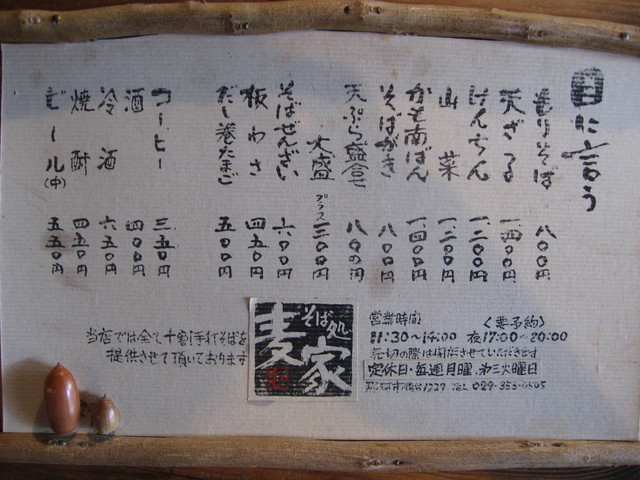 目に言う
もりそば 八〇〇円
天ざる 一、四〇〇円
けんちん 一、二〇〇円
山菜 一、二〇〇円
かも南ばん 一、四〇〇円
そばがき 八〇〇円
天ぷら盛合せ 八〇〇円
大盛 プラス 三〇〇円
そばぜんざい 六〇〇円
板わさ 四五〇円
だし巻たまご 五〇〇円
コーヒー 三五〇円
酒 四〇〇円
冷酒 六五〇円
焼酎 四五〇円
ビール(中) 五五〇円
当店では全て十割手打そばを
提供させて頂いております
そば処
麦家
営業時間 〈要予約〉
11:30~14:00 夜17:00~20:00
売切の際は閉店させていただきます
定休日・毎週月曜、第三火曜日
1229 TEL 029-353-0505